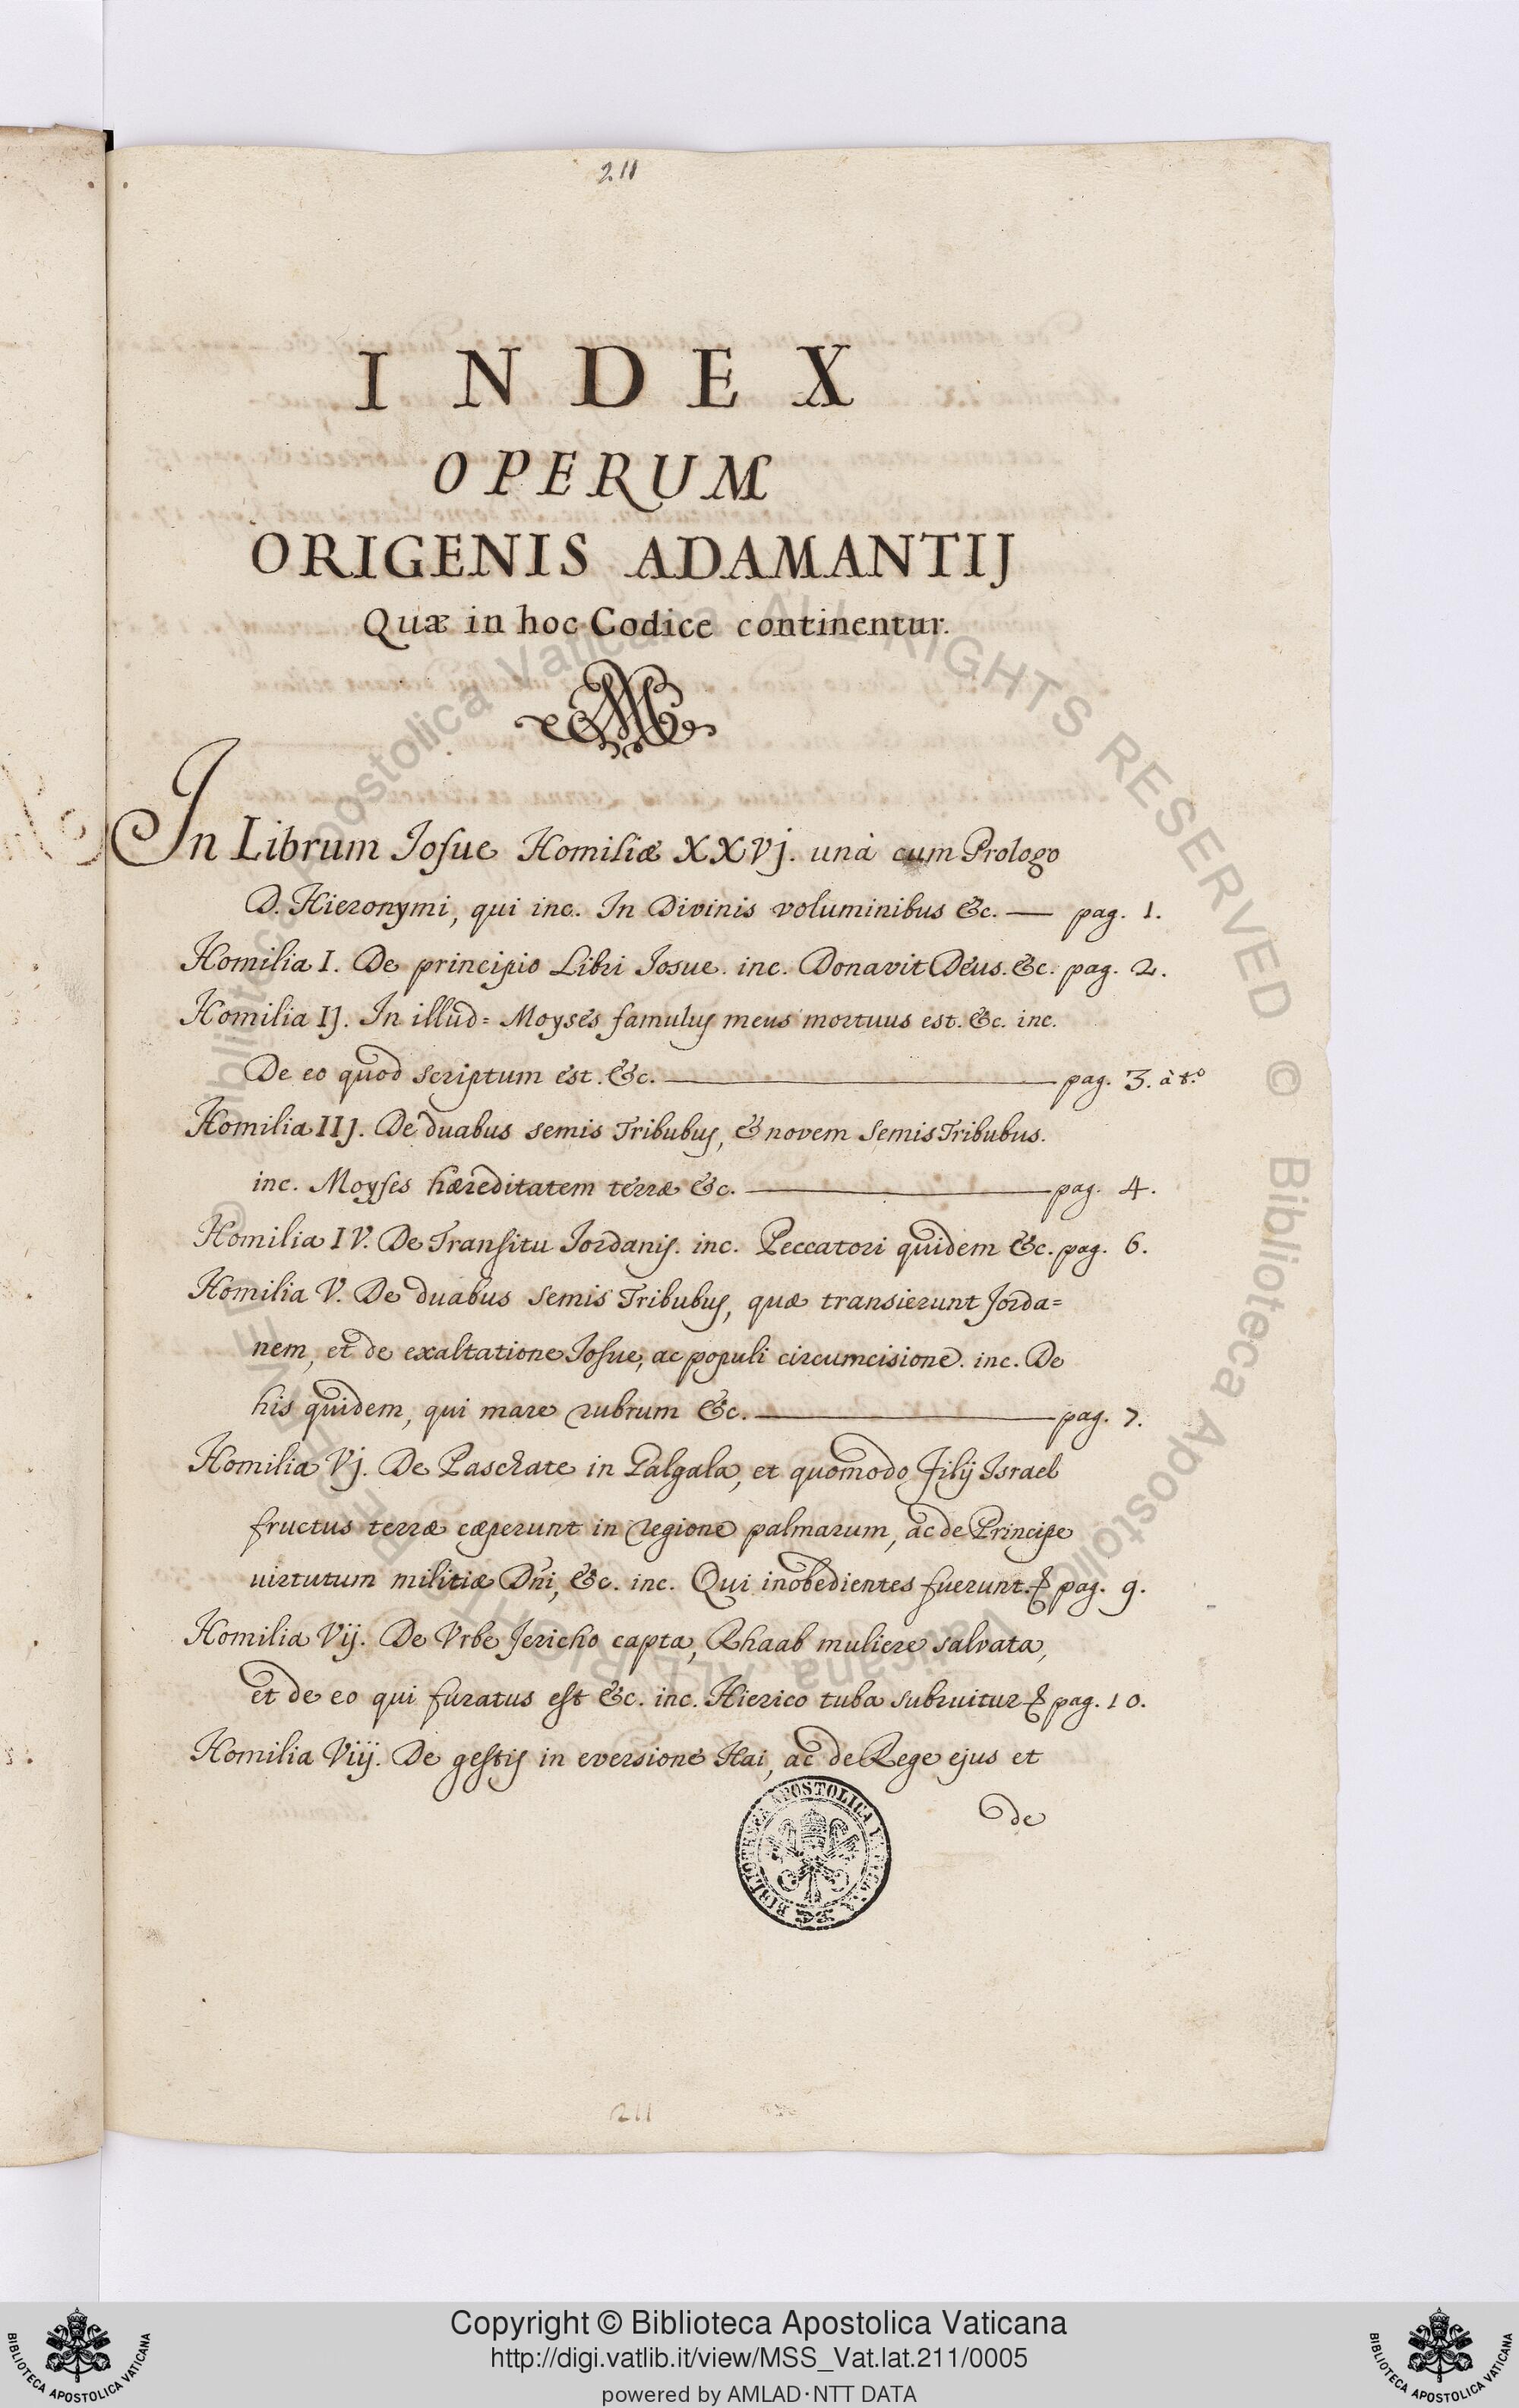 211
INDEX
OPERUM
ORIGENIS ADAMANTIJ
Quæ in hoc Codice continentur.
In Librum Iosue Homiliæ XXVj. unà cum Prologo
D. Hieronymi, qui inc. In Divinis voluminibus &c. — pag. 1.
Homilia I. De principio Libri Josue. inc. Donavit Deus. &c. pag. 2.
Homilia IJ. In illud= Moyses famulus meus mortuus est. &c. inc.
De eo quod scriptum est. &c. — pag. 3. à t.º
Homilia IIJ. De duabus semis Tribubus, & novem semis Tribubus.
inc. Moyses hæreditatem terræ &c. — pag. 4.
Homilia IV. De Transitu Jordanis. inc. Peccatori quidem &c. pag. 6.
Homilia V. De duabus semis Tribubus, quæ transierunt Jorda=
nem, et de exaltatione Iosue, ac populi circumcisione. inc. De
his quidem, qui mare rubrum &c. — pag. 7.
Homilia Vj. De Paschate in Galgala, et quomodo filij Israel
fructus terræ cæperunt in regione palmarum, ac de Principe
virtutum militiæ Dñi, &c. inc. Qui inobedientes fuerunt. & pag. 9.
Homilia Vij. De Vrbe Jericho capta, Rhaab muliere salvata,
et de eo qui furatus est &c. inc. Hierico tuba subruitur & pag. 10.
Homilia Viij. De gestis in eversione Hai, ac de Rege ejus et
de
BIBLIOTECA APOSTOLICA VATICANA
211
© Biblioteca Apostolica Vaticana ALL RIGHTS RESERVED © Biblioteca Apostolica Vaticana ALL RIGHTS RESERVED
Copyright © Biblioteca Apostolica Vaticana
http://digi.vatlib.it/view/MSS_Vat.lat.211/0005
powered by AMLAD·NTT DATA
BIBLIOTECA APOSTOLICA VATICANA
BIBLIOTECA APOSTOLICA VATICANA